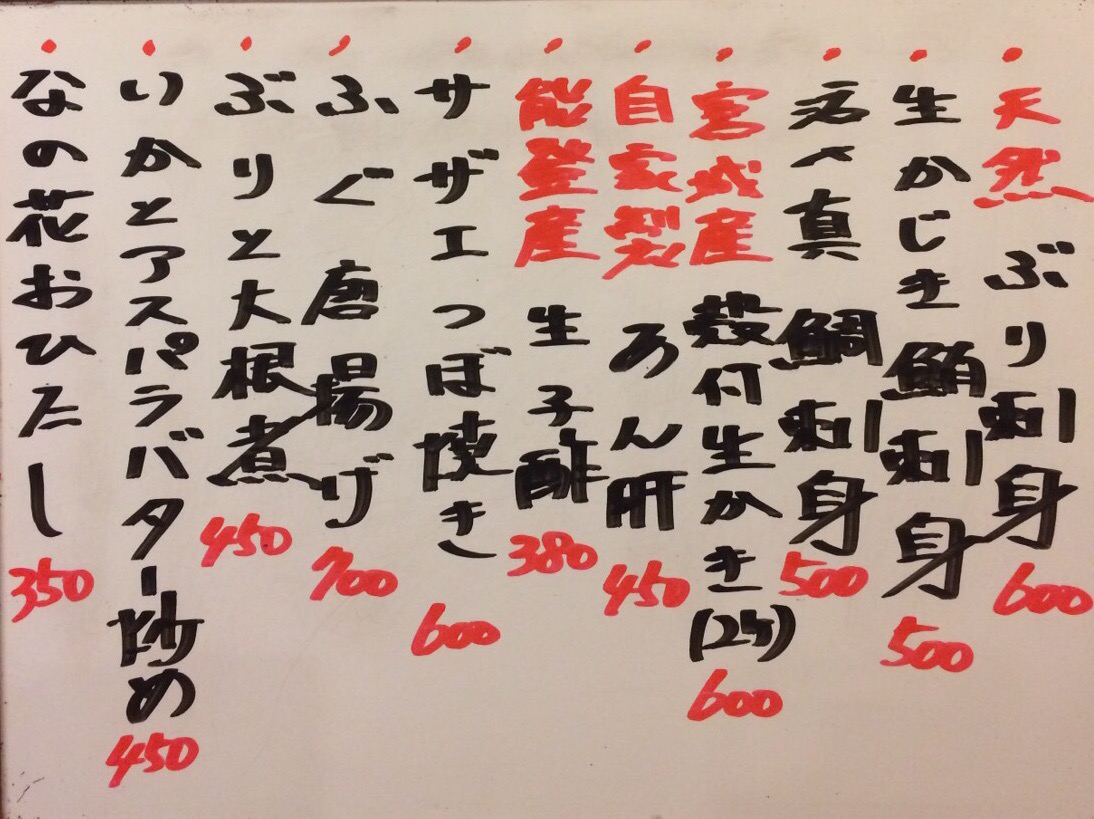 ・天然 ぶり刺身 600
・生かじき鮪刺身 500
・活〆真鯛刺身 500
・宮城産 殻付生かき(2ケ) 600
・自家製 あん肝 450
・能登産 生子酢 380
・サザエつぼ焼き 600
・ふぐ唐揚げ 700
・ぶりと大根煮 450
・いかとアスパラバター炒め 450
・なの花おひたし 350